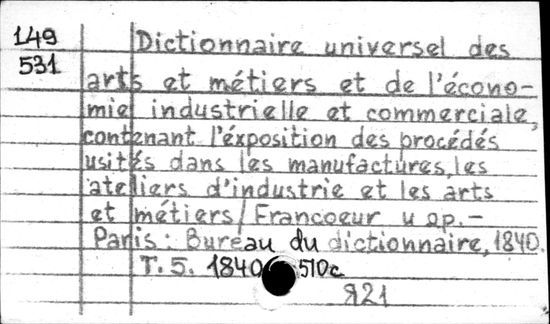 149
531
Dictionnaire universel des
arts et métiers et de l'écono-
mie industrielle et commerciale,
contenant l'éxposition des procédés
usités dans les manufactures, les
ateliers d'industrie et les arts
et métiers / Francoeur и др. –
Paris: Bureau du dictionnaire, 1840.
T. 5. 1840 510c.
Я21